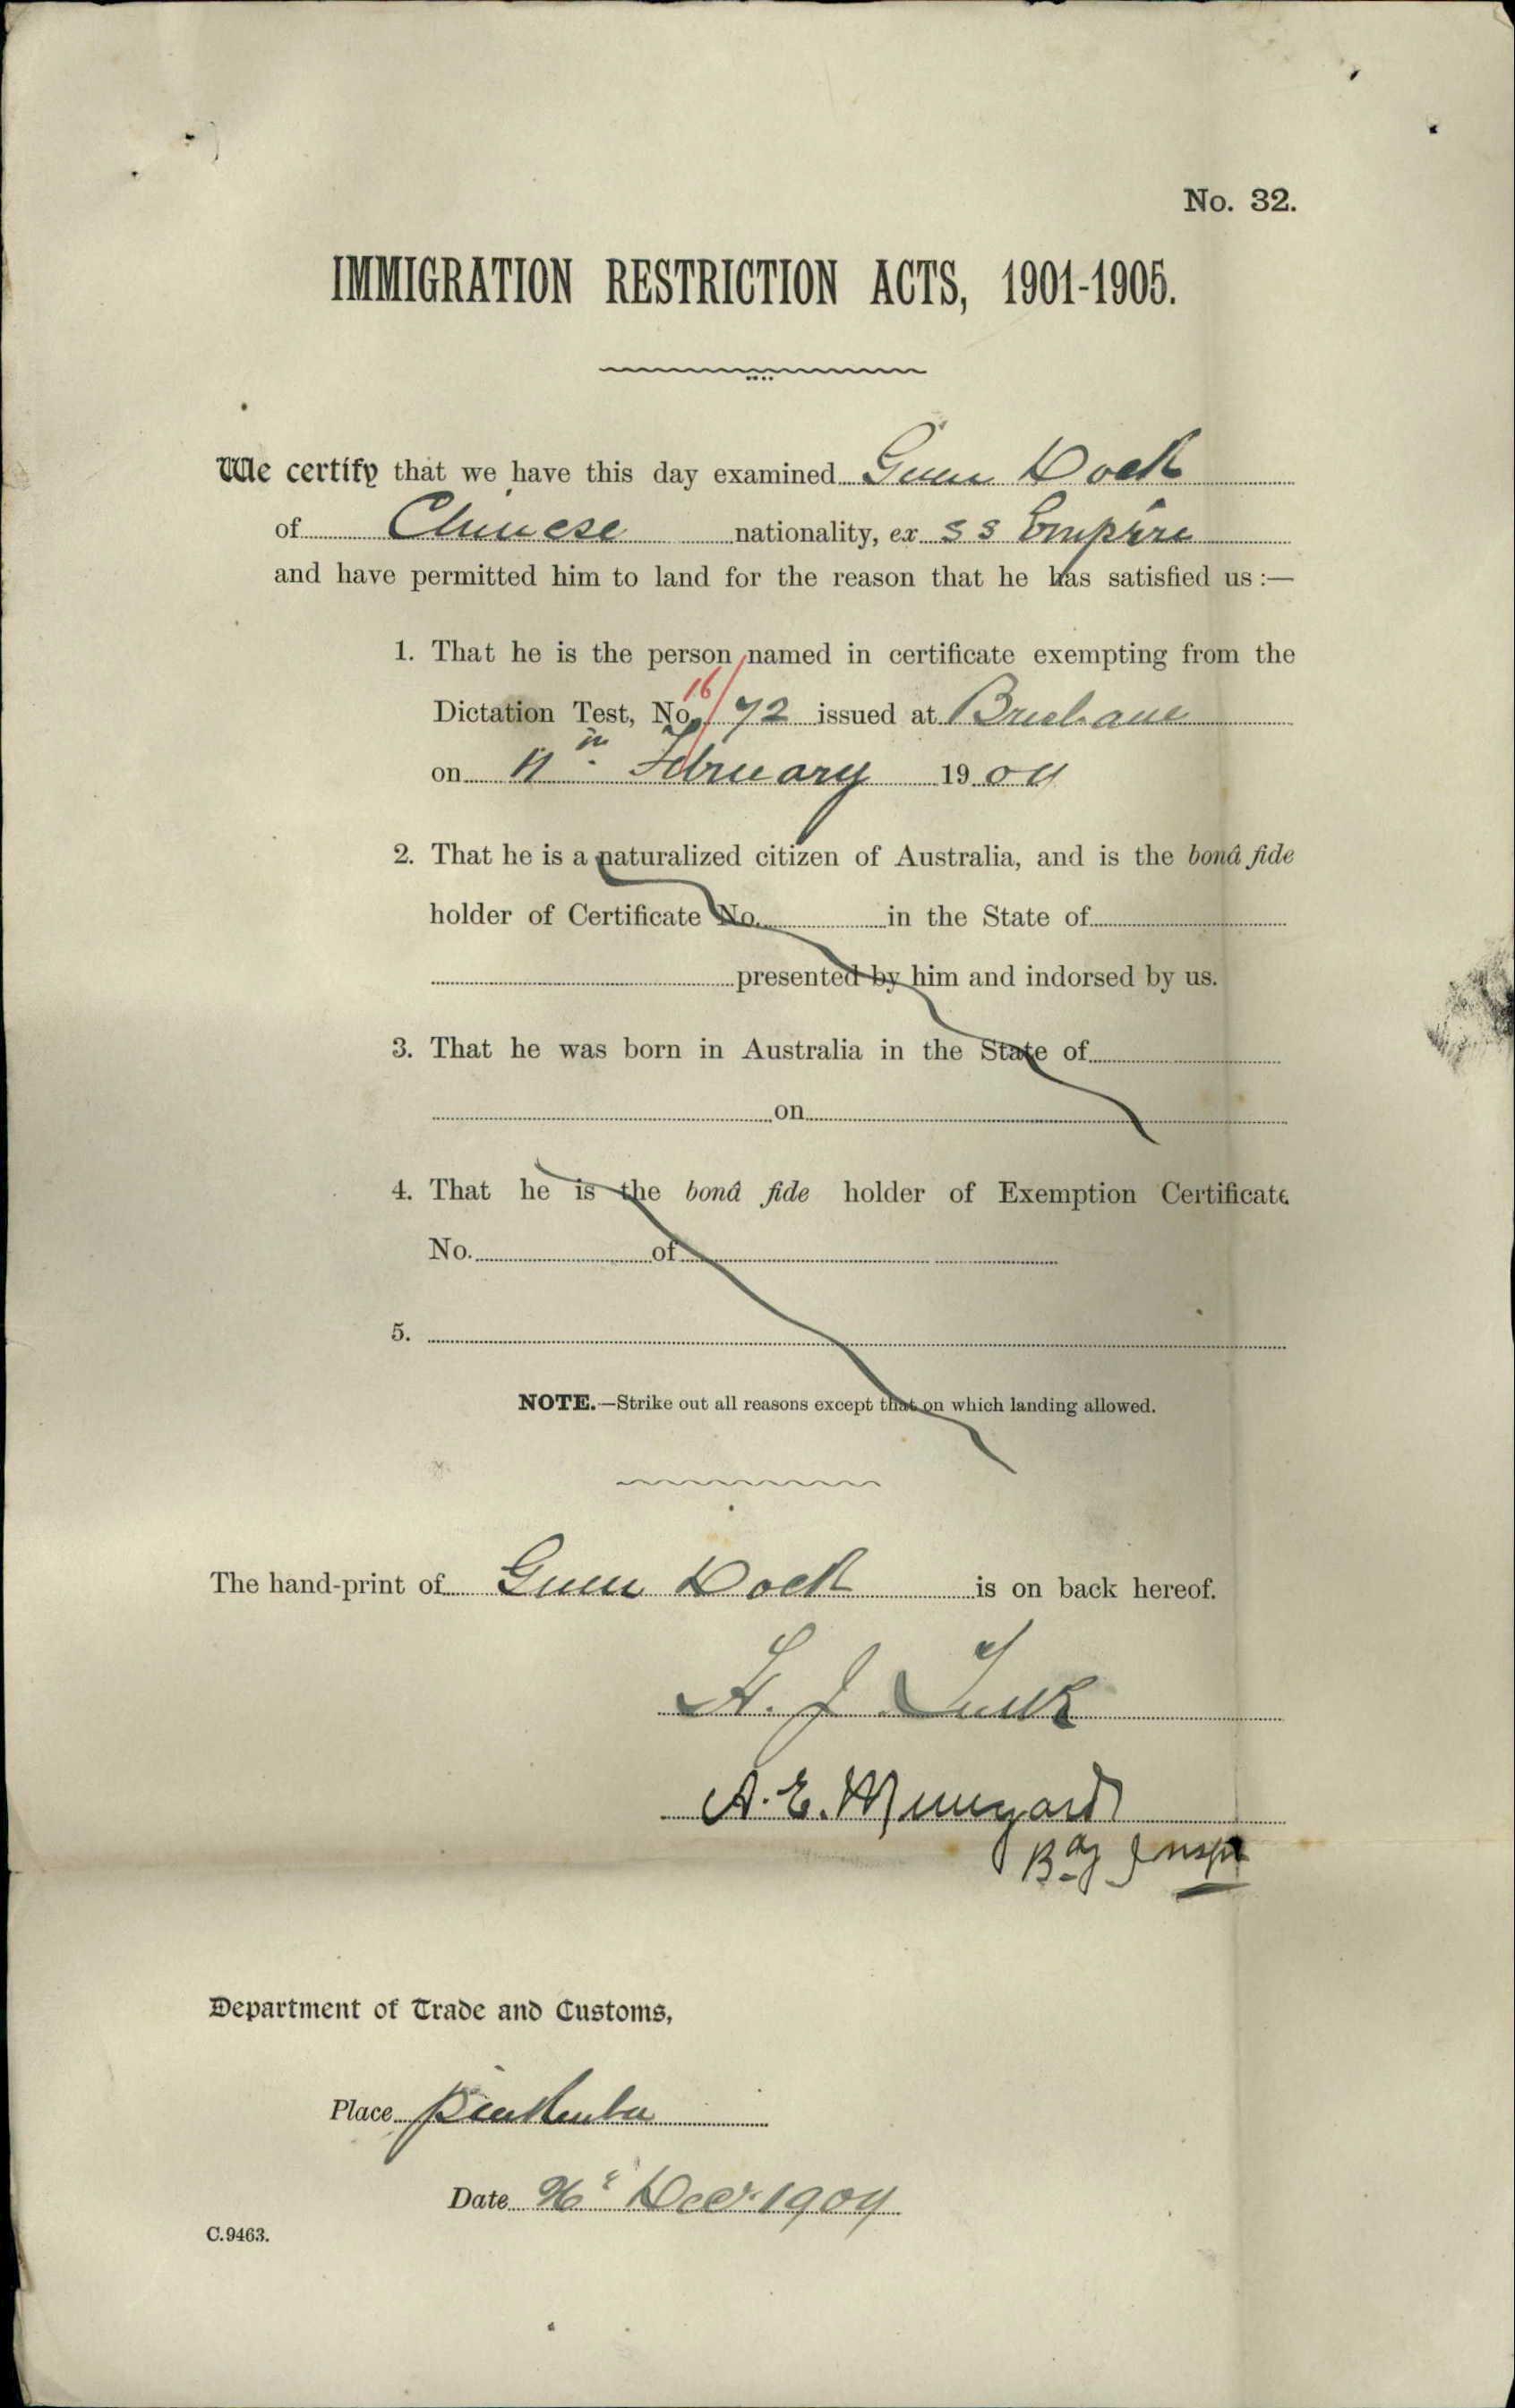 No. 32.
IMMIGRATION RESTRICTION ACTS, 1901-1905.
We certify that we have this day examined Gum Dock
of Chinese nationality, ex S S Empire
and have permitted him to land for the reason that he has satisfied us :—
1. That he is the person named in certificate exempting from the
Dictation Test, No. 16/72 issued at Brisbane
on February 1909
2. That he is a naturalized citizen of Australia, and is the bonâ fide
holder of Certificate No. in the State of
presented by him and indorsed by us.
3. That he was born in Australia in the State of
on
4. That he is the bonâ fide holder of Exemption Certificate
No. of
5.
NOTE.—Strike out all reasons except that on which landing allowed.
The hand-print of Gum Dock is on back hereof.
A. E.
Bay Inspr
Department of Trade and Customs,
Place Pinkenba
Date Decr 1909
C.9463.